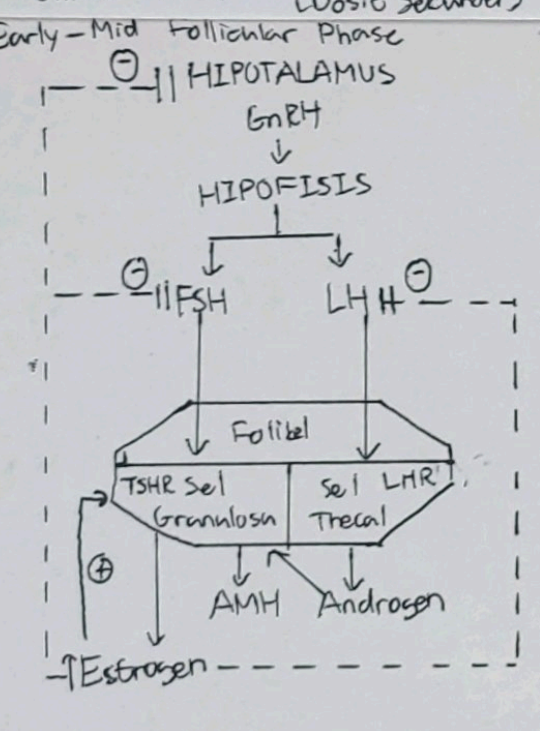 Early-Mid Follicular Phase
⊖ HIPOTALAMUS
GnRH
HIPOFISIS
⊖ FSH LH ⊖
Folikel
TSHR Sel Granulosa
Sel LHR Thecal
⊕ AMH Androgen
↑Estrogen